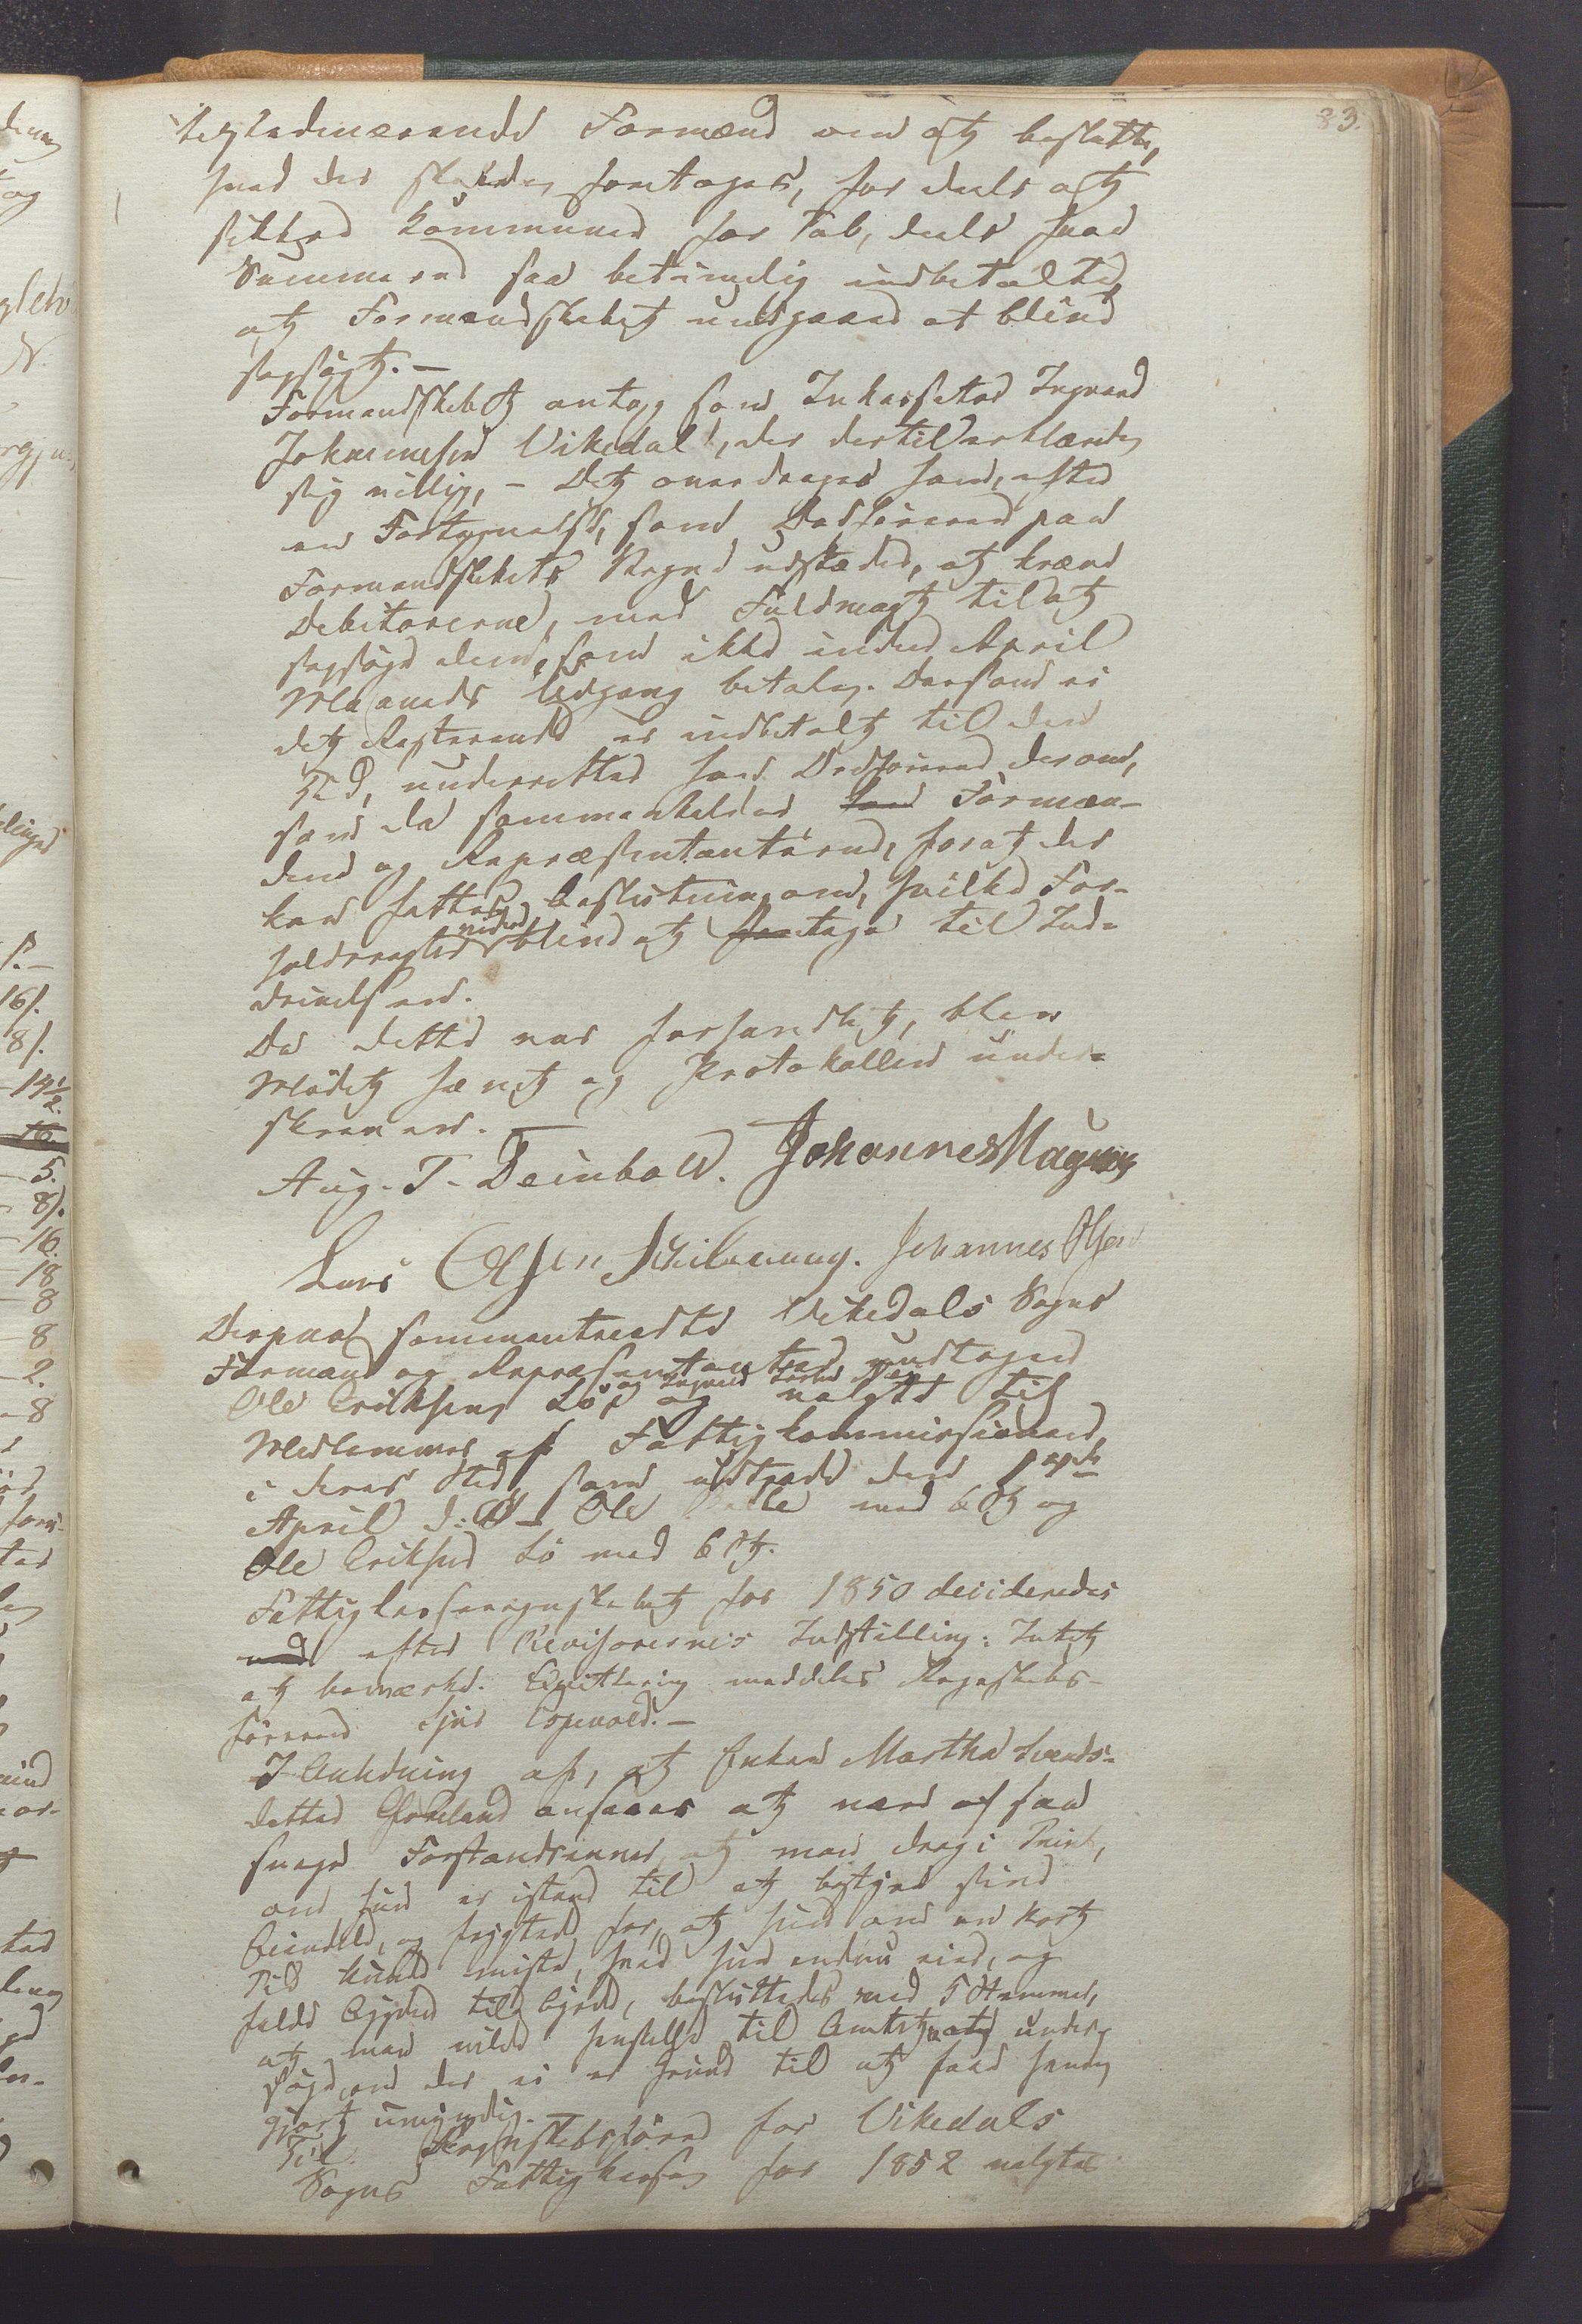 83.
tilstedeværende Formænd om at beslutte,
hvad der skulde foretages, for deels at
sikkre Kommunen for Tab, deels faae
Summerne saa betimelig indbetalte,
at Formandskabet undgaaer at blive
sagsøgt. —
Formandskabet antog som Inkassator Ingvard
Johannesen Vikedal, der dertil erklærede
sig villig, – Det overdrages ham, efter
en Fortegnelse, som Ordføreren paa
Formandskabets Vegne udsteder, at kræve
Debitorerne, med Fuldmagt til at
sagsøge dem, som ikke inden April
Maaneds Udgang betaler. Dersom ei
det Resterende er indbetalt til den
Tid, underretter han Ordføreren derom,
som da sammenkalder Formæn-
dene og Repræsentanterne, for at der
kan fattes Beslutning om, hvilke For-
holdsregler videre blive at tage til Ind-
drivelsen.
Da dette var forhandlet, blev
Mødet hævet og Protokollen under-
skreven. —
Aug. T. Deinboll. Johannes Magnus
Lars Olsen Johannes Olsen
Derpaa sammentraadte Vikedals Sogns
Formænd og Repræsentanter undtagen
og Ingvard
Ole Eriksen Lø og valgte til
Medlemmer af Fattigkommissionen,
i deres Sted, som udtræde den 1ste
April d: A – Ole med 6 St og
Ole Eriksen Lø med 6 St.
Fattigkasseregnskabet for 1850 decideredes
efter Revisorernes Indstilling: Intet
at bemærke. Qvittering meddeles Regnskabs-
føreren Espevold. —
I Anledning af, at Enken Martha Svends-
datter ansaaes at være af saa
svage Forstandsevner, at man drog i Tvivl,
om hun er istand til at bestyre sine
Eiendele, og frygtede for, at hun om en kort
Tid kunde miste, hvad hun endnu eier, og
falde Bygden til Byrde, besluttedes med 5 Stemmer,
at man vilde henstille til Amtet at under-
søge, om der ei er Grund til at faae hende
gjort umyndig. —
Til Regnskabsfører for Vikedals
Sogns Fattigkasse for 1852 valgtes